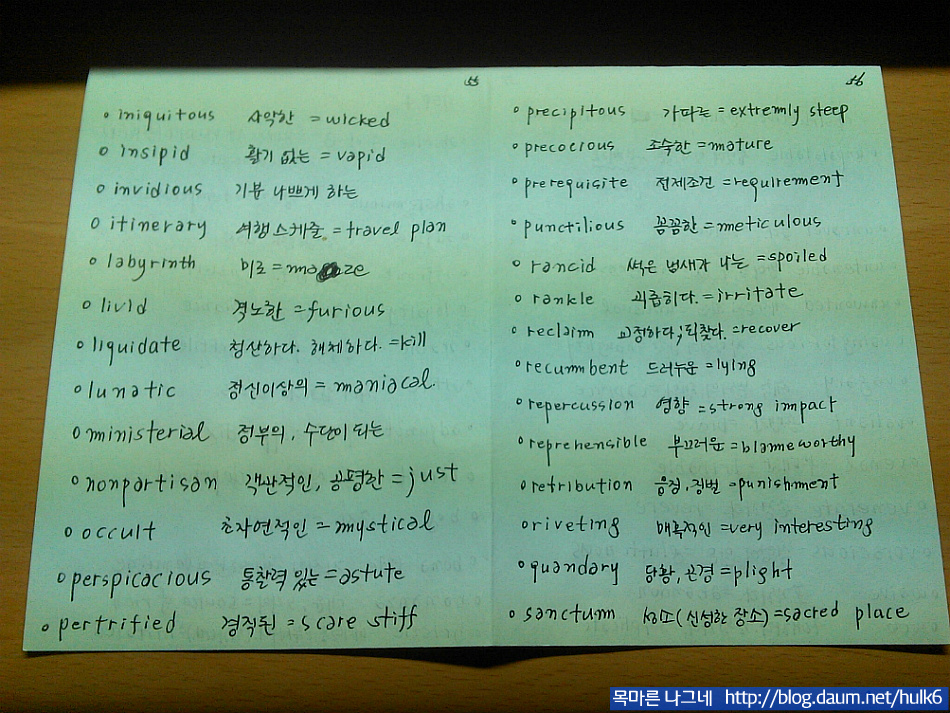 55
o iniquitous 사악한 = wicked
o insipid 활기 없는 = vapid
o invidious 기분 나쁘게 하는
o itinerary 여행 스케줄 = travel plan
o labyrinth 미로 = maze
o livid 격노한 = furious
o liquidate 청산하다. 해체하다. =kill
o lunatic 정신이상의 = maniacal
o ministerial 정부의, 수단이 되는
o nonpartisan 객관적인, 공평한 = just
o occult 초자연적인 = mystical
o perspicacious 통찰력 있는 = astute
o pertrified 경직된 = scare stiff
56
o precipitous 가파른 = extremly steep
o precocious 조숙한 = mature
o prerequisite 전제조건 = requirement
o punctilious 꼼꼼한 = meticulous
o rancid 썩은 냄새가 나는 = spoiled
o rankle 괴롭히다. = irritate
o reclaim 교정하다; 되찾다. = recover
o recumbent 드러누운 = lying
o repercussion 영향 = strong impact
o reprehensible 부끄러운 = blameworthy
o retribution 응징, 징벌 = punishment
o riveting 매혹적인 = very interesting
o quandary 당황, 곤경 = plight
o sanctum 성소 (신성한 장소) = sacred place
목마른 나그네 http://blog.daum.net/hulk6